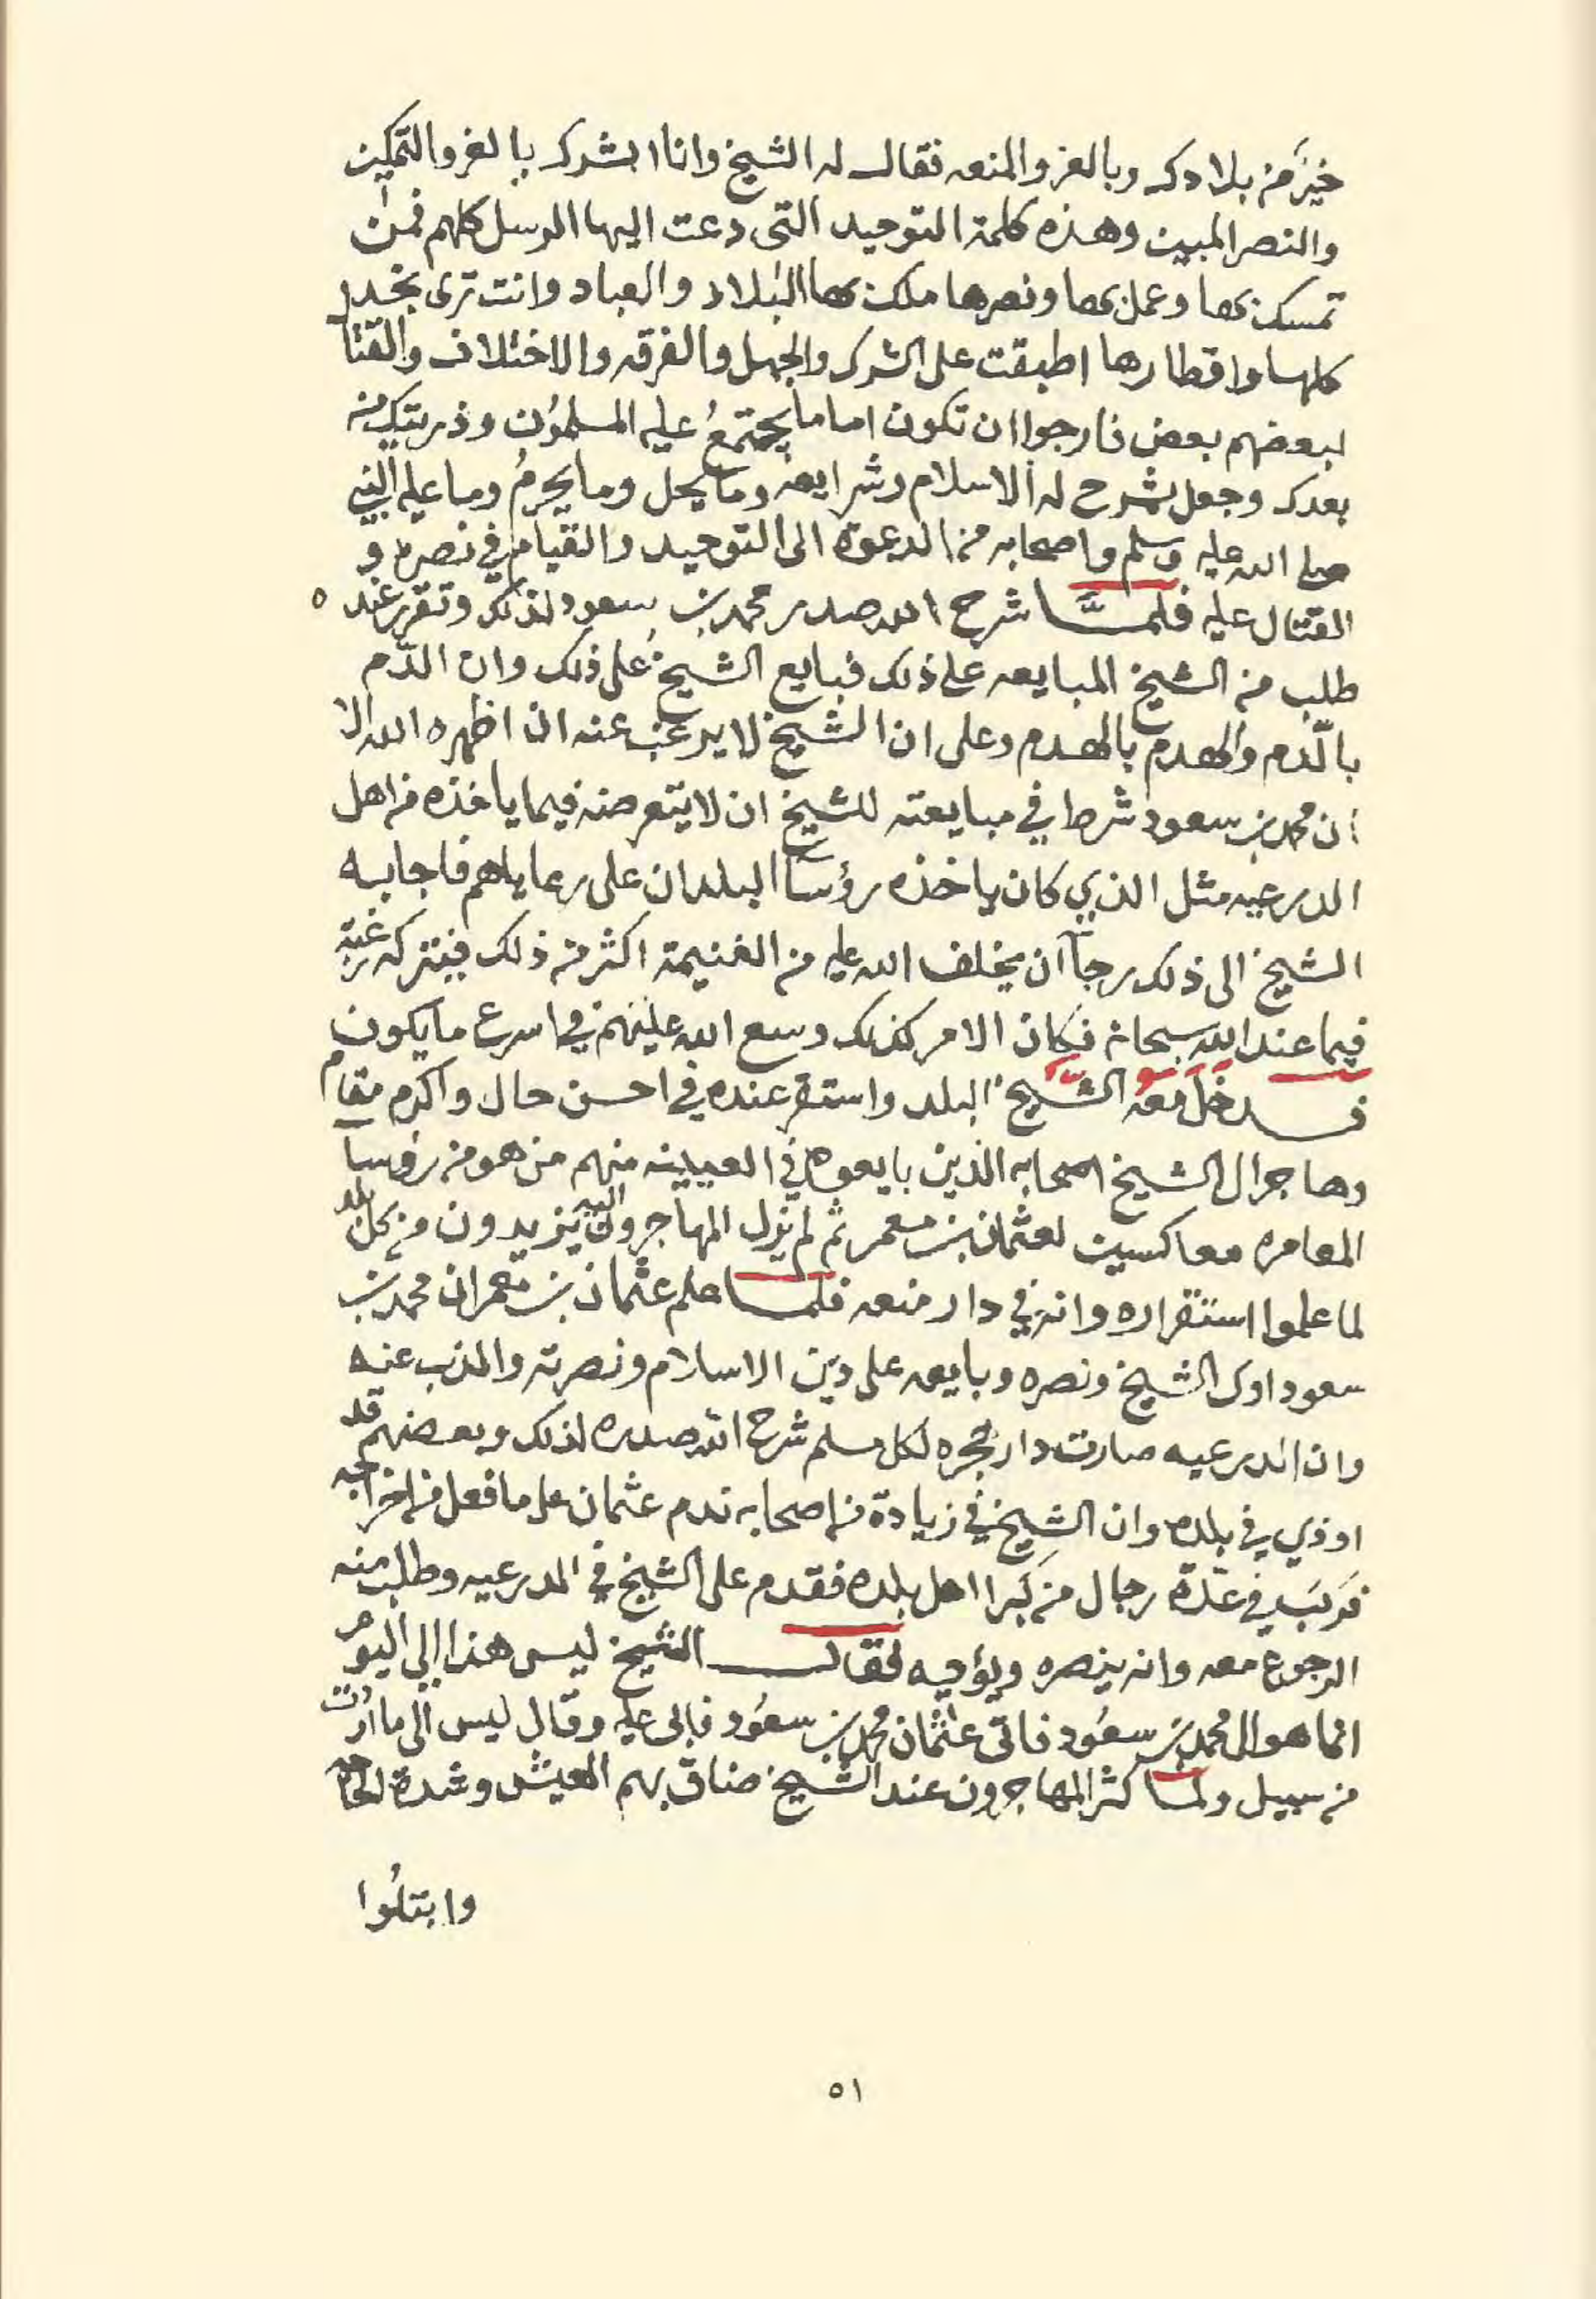 خيرٌ من بلادك وبالعز والمنعه فقال له الشيخ وانا ابشرك بالعز والتمكين
والنصر المبين وهذه كلمة التوحيد التي دعت اليها الرسل كلهم فمن
تمسك بها وعمل بها ونصرها ملك بها البلاد والعباد وانت ترى نجد
كلها واقطارها اطبقت على الشرك والجهل والفرقه والاختلاف والقتال
لبعضهم بعض فارجوا ان تكون اماما يجتمعُ عليه المسلمُون وذريتك من
بعدك وجعل يشرح له الاسلام وشرايعه وما يحل وما يحرمُ وما عليه النبي
صلى الله عليه وسلم واصحابه من الدعوة الى التوحيد والقيام في نصره و
القتال عليه فلمَّا شرح الله صدر محمد بن سعود لذلك وتقرر عنده
طلب من الشيخ المبايعه على ذلك فبايع الشيخُ على ذلك وان الدّم
بالّدم والهدم بالهدم وعلى ان الشيخ لا يرغب عنه ان اظهره الله الا
ان محمد بن سعود شرط في مبايعته للشيخ ان لا يتعرضه فيما ياخذه من اهل
الدرعيه مثل الذي كان ياخذه رؤسا البلدان على رعاياهم فاجابه
الشيخ الى ذلك رجآ ان يخلف الله عليه من الغنيمة اكثر من ذلك فيتركه رغبة
فيما عند الله سبحانه فكان الامر كذلك وسع الله عليهم في اسرع ما يكون
فدخل معه الشيخ البلد واستقر عنده في احسن حال واكرم مقام
وهاجر الى الشيخ اصحابه الذين بايعوه في العيينه منهم من هو من رؤسا
المعامره معاكسين لعثمان بن معمر ثم لم يزل المهاجرون اليه يزيدون من كل بلد
لما علموا استقراره وانه في دار منعه فلما علم عثمان بن معمر ان محمد بن
سعود اوى الشيخ ونصره وبايعه على دين الاسلام ونصرته والذب عنه
وان الدرعيه صارت دار هجره لكل مسلم شرح الله صدره لذلك وبعضهم قد
اوذي في بلده وان الشيخ في زيادة من اصحابه ندم عثمان على ما فعل من اخراجه
فركب في عدّة رجال من كبرا اهل بلده فقدم على الشيخ في الدرعيه وطلب منه
الرجوع معه وانه ينصره ويؤاويه فقال الشيخ ليس هذا الي اليوم
انما هو الى محمد بن سعُود فاتى عثمان محمد بن سعُود فابى عليه وقال ليس الى ما اردت
من سبيل ولما كثر المهاجرون عند الشيخ ضاق بهم العيش وشدة الحاجة
وابتلُوا
٥١